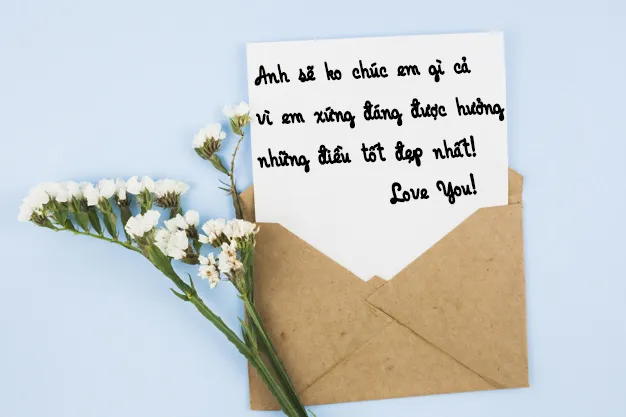 Anh sẽ ko chúc em gì cả
vì em xứng đáng được hưởng
những điều tốt đẹp nhất!
Love You!